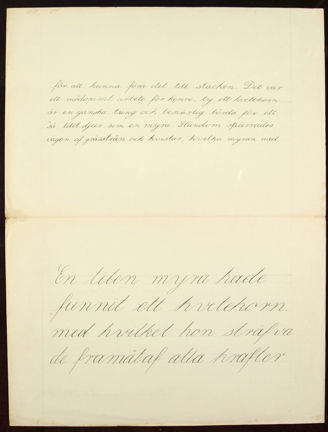 för att kunna föra det till stacken. Det var
ett mödosamt arbete för henne, ty ett hvetekorn
är en ganska tung och besvärlig börda för ett
så litet djur som en myra. Stundom spärrades
vägen af grässtrån och kvistar, hvilka myran med
En liten myra hade
funnit ett hvetekorn,
med hvilket hon sträfva
de framåt af alla krafter